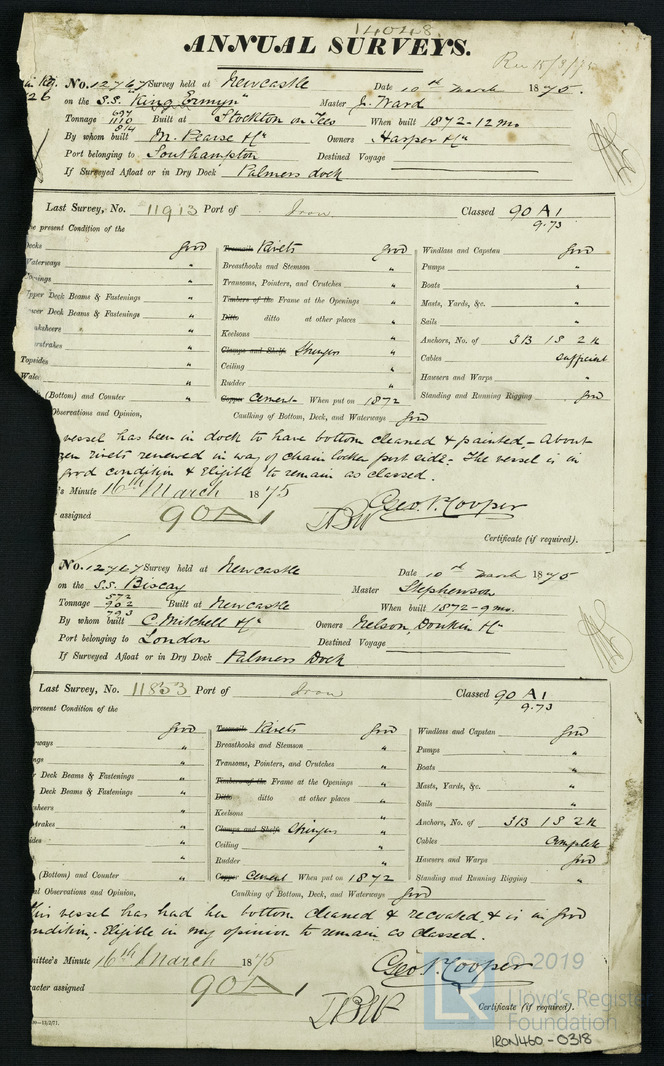 14048
ANNUAL SURVEYS.
Rec 15/3/75
No. 12767 Survey held at Newcastle Date 10th March 1875.
on the S.S. "King Ermyn" Master J. Ward
Tonnage 697 1110 814 Built at Stockton on Tees When built 1872-12 mo.
By whom built M. Pearse & Co Owners Harper & Co
Port belonging to Southampton Destined Voyage
If Surveyed Afloat or in Dry Dock Palmers dock
Last Survey, No. 11913 Port of Iron Classed 90 A1
9.73
present Condition of the
Decks good Treenails Rivets good Windlass and Capstan good
Waterways " Breasthooks and Stemson " Pumps "
" Transoms, Pointers, and Crutches " Boats "
Upper Deck Beams & Fastenings " Timbers of the Frame at the Openings " Masts, Yards, &c. "
Lower Deck Beams & Fastenings " Ditto ditto at other places " Sails "
sheers " Keelsons " Anchors, No. of 3B 1S 2K
strakes " Clamps and Shelfs Stringers " Cables Sufficient
Topsides " Ceiling " Hawsers and Warps "
Wales " Rudder " Standing and Running Rigging good
(Bottom) and Counter " Copper Cement When put on 1872
Observations and Opinion, Caulking of Bottom, Deck, and Waterways good
vessel has been in dock to have bottom cleaned & painted - About
rivets renewed in way of chain locker port side - The vessel is in
good condition & Eligible to remain as classed.
's Minute 16th March 1875
assigned 90A1 Geo. P. Cooper
Certificate (if required).
No. 12767 Survey held at Newcastle Date 10th March 1875
on the S.S. Biscay Master Stephenson
Tonnage 572 902 793 Built at Newcastle When built 1872-9 mo.
By whom built C. Mitchell & Co Owners Nelson, Donkin & Co
Port belonging to London Destined Voyage
If Surveyed Afloat or in Dry Dock Palmers Dock
Last Survey, No. 11853 Port of Iron Classed 90 A1
9.73
present Condition of the
good Treenails Rivets good Windlass and Capstan good
ways " Breasthooks and Stemson " Pumps "
ngs " Transoms, Pointers, and Crutches " Boats "
Deck Beams & Fastenings " Timbers of the Frame at the Openings " Masts, Yards, &c. "
Deck Beams & Fastenings " Ditto ditto at other places " Sails "
sheers " Keelsons " Anchors, No. of 3B 1S 2K
trakes " Clamps and Shelfs Stringers " Cables Complete
ides " Ceiling " Hawsers and Warps good
" Rudder " Standing and Running Rigging "
(Bottom) and Counter " Copper Cement When put on 1872
al Observations and Opinion, Caulking of Bottom, Deck, and Waterways good
This vessel has had her bottom cleaned & recoated, & is in good
condition, - Eligible in my opinion to remain as classed.
mittee's Minute 16th March 1875
racter assigned 90A1 Geo. P. Cooper
Certificate (if required).
© 2019
LR Lloyd's Register
Foundation
IRON460-0318